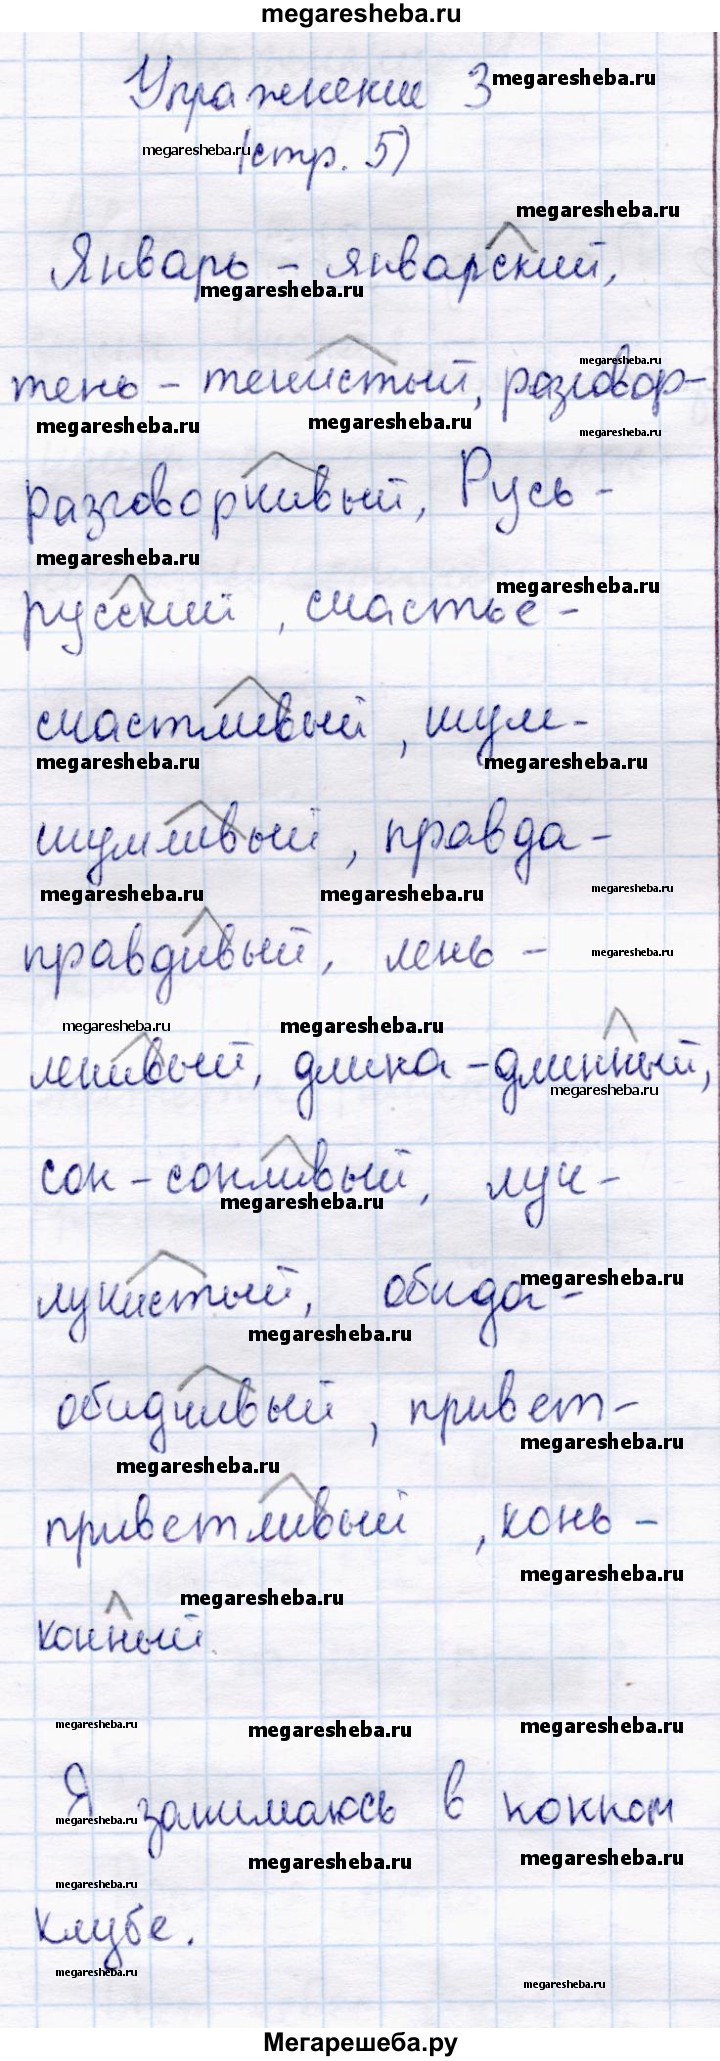 megaresheba.ru
Упражнение 3 megaresheba.ru
megaresheba.ru (стр. 5)
megaresheba.ru
Январь - январский,
megaresheba.ru
megaresheba.ru
тень - тенистый, разговор-
megaresheba.ru megaresheba.ru megaresheba.ru
разговорчивый, Русь -
megaresheba.ru
megaresheba.ru
русский, счастье -
счастливый, шум -
megaresheba.ru megaresheba.ru
шумливый, правда -
megaresheba.ru megaresheba.ru megaresheba.ru
правдивый, лень -
megaresheba.ru
megaresheba.ru megaresheba.ru
ленивый, длина - длинный,
megaresheba.ru
сон - сонливый, луч -
megaresheba.ru
лучистый, обида -
megaresheba.ru
megaresheba.ru
обидчивый, привет -
megaresheba.ru
megaresheba.ru
приветливый, конь -
megaresheba.ru
megaresheba.ru
конный.
megaresheba.ru megaresheba.ru megaresheba.ru
Я занимаюсь в конном
megaresheba.ru
megaresheba.ru megaresheba.ru
megaresheba.ru
клубе.
megaresheba.ru
megaresheba.ru
Мегарешеба.ру